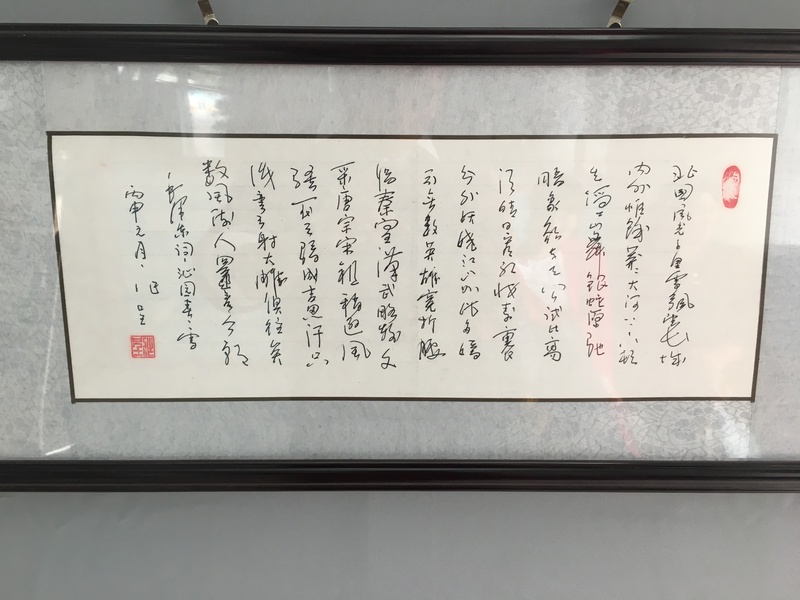 北国风光千里雪飘望长城
内外惟馀莽莽大河上下顿
失滔滔山舞银蛇原驰
蜡象欲与天公试比高
须晴日看红装素裹
分外妖娆江山如此多娇
引无数英雄竞折腰
惜秦皇汉武略输文
采唐宗宋祖稍逊风
骚一代天骄成吉思汗只
识弯弓射大雕俱往矣
数风流人物还看今朝
毛泽东词沁园春雪
丙申元月